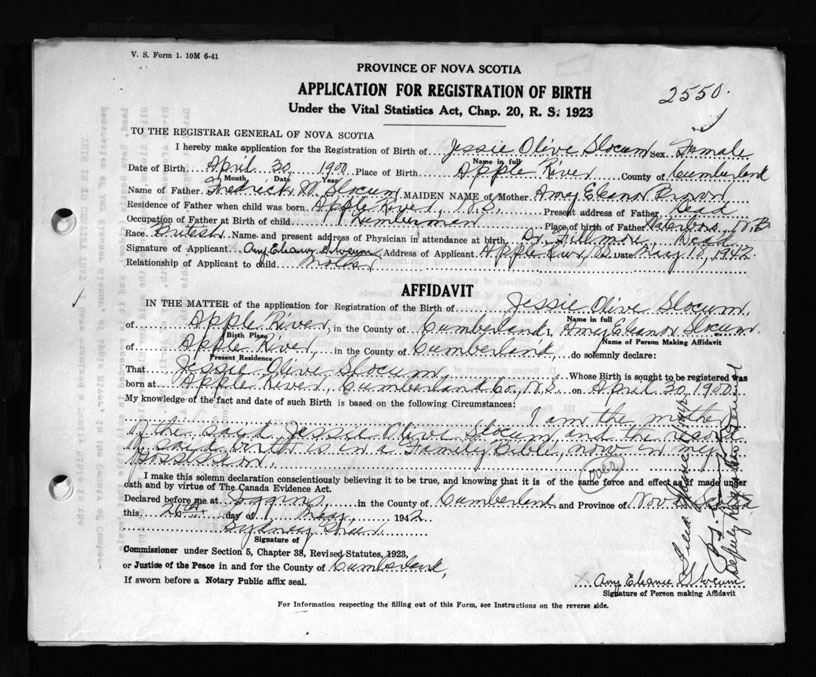 V. S. Form 1. 10M 6-41
PROVINCE OF NOVA SCOTIA
APPLICATION FOR REGISTRATION OF BIRTH
2550.
Under the Vital Statistics Act, Chap. 20, R. S. 1923
TO THE REGISTRAR GENERAL OF NOVA SCOTIA
I hereby make application for the Registration of Birth of Jessie Olive Slocum Sex Female
Name in full
Date of Birth April 30 1900 Place of Birth Apple River County of Cumberland
Month Date Year
Name of Father Fredrick M. Slocum MAIDEN NAME of Mother Amy Eleanor Brown
Residence of Father when child was born Apple River, N.S. Present address of Father Dead
Occupation of Father at Birth of child Lumberman Place of birth of Father N.B
Race British Name and present address of Physician in attendance at birth Dr. Dead
Signature of Applicant Amy Eleanor Slocum Address of Applicant Apple River N.S. Date May 1942
Relationship of Applicant to child Mother
AFFIDAVIT
IN THE MATTER of the application for Registration of the Birth of Jessie Olive Slocum,
Name in full
of Apple River, in the County of Cumberland I, Amy Eleanor Slocum
Birth Place
Name of Person Making Affidavit
of Apple River, in the County of Cumberland, do solemnly declare:
Present Residence
That Jessie Olive Slocum, Whose Birth is sought to be registered was
born at Apple River, Cumberland Co. N.S. on April 30 1900
My knowledge of the fact and date of such Birth is based on the following Circumstances:
I am the mother
of the said Jessie Olive Slocum and the record
of said birth is in a Family Bible, now in my
Possession.
I make this solemn declaration conscientiously believing it to be true, and knowing that it is of the same force and effect as if made under
oath and by virtue of The Canada Evidence Act.
Declared before me at Joggins, in the County of Cumberland and Province of Nova Scotia
this 26th day of May, 1942
Sydney
Signature of
Commissioner under Section 5, Chapter 38, Revised Statutes, 1923,
or Justice of the Peace in and for the County of Cumberland,
If sworn before a Notary Public affix seal.
x Amy Eleanor Slocum
Signature of Person making Affidavit
For Information respecting the filling out of this Form, see Instructions on the reverse side.